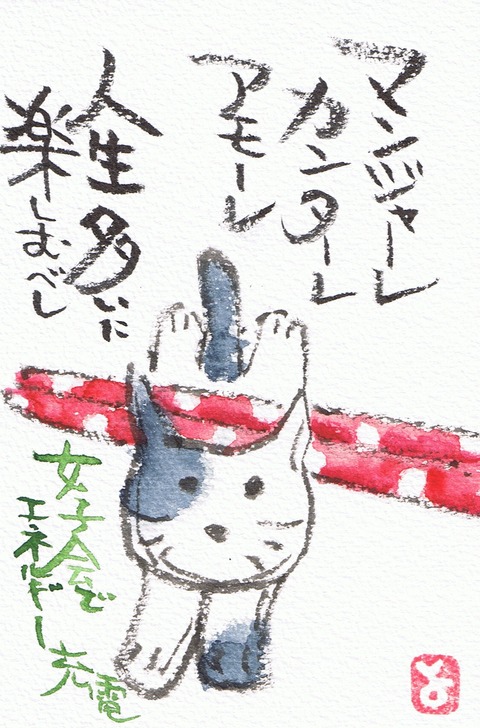 マンジャーレ
カンターレ
アモーレ
人生多いに
楽しむべし
女子会で
エネルギー充電